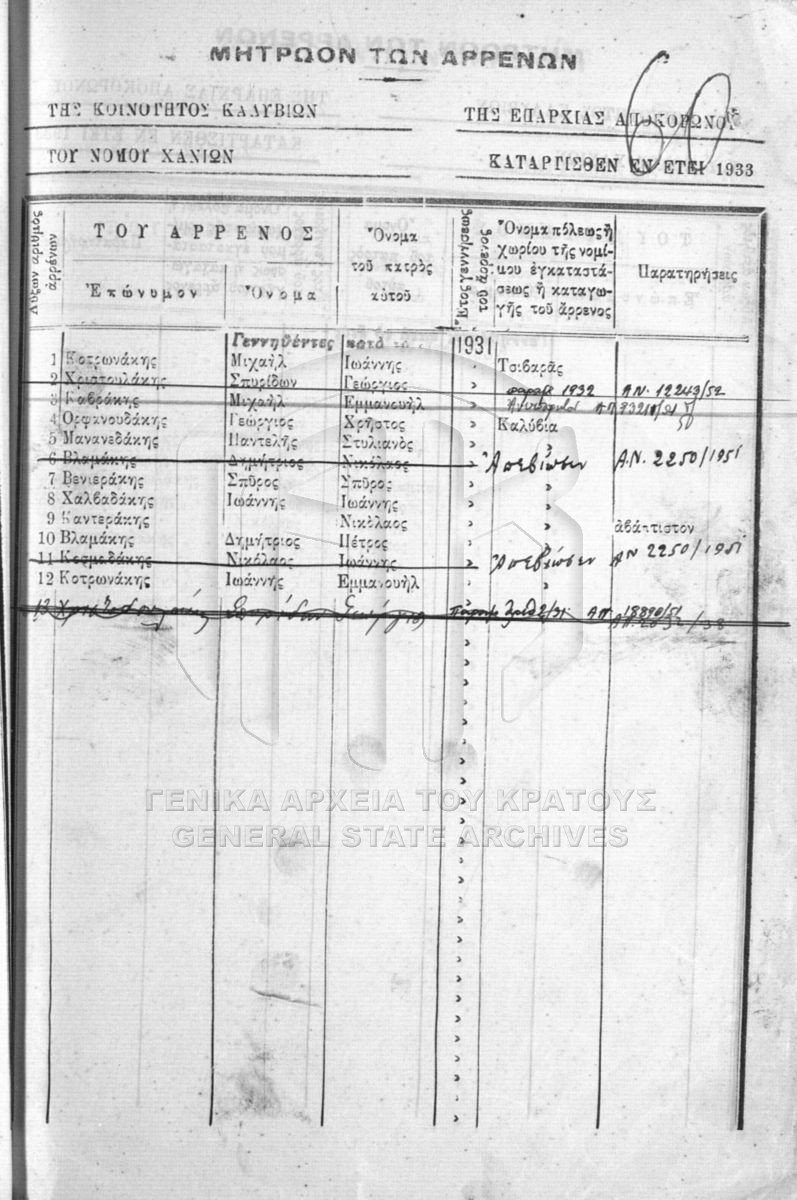 ΜΗΤΡΩΟΝ ΤΩΝ ΑΡΡΕΝΩΝ
60
ΤΗΣ ΚΟΙΝΟΤΗΤΟΣ ΚΑΛΥΒΙΩΝ ΤΗΣ ΕΠΑΡΧΙΑΣ ΑΠΟΚΟΡΩΝΟΥ
ΤΟΥ ΝΟΜΟΥ ΧΑΝΙΩΝ ΚΑΤΑΡΤΙΣΘΕΝ ΕΝ ΕΤΕΙ 1933
Αὔξων ἀριθμὸς ἀρρένων
ΤΟΥ ΑΡΡΕΝΟΣ
Ἐπώνυμον Ὄνομα
Ὄνομα
τοῦ πατρὸς
αὐτοῦ
Ἔτος γεννήσεως
τοῦ ἄρρενος
Ὄνομα πόλεως ἢ
χωρίου τῆς νομί-
μου ἐγκαταστά-
σεως ἢ καταγω-
γῆς τοῦ ἄρρενος
Παρατηρήσεις
Γεννηθέντες κατὰ 1931
1 Κοτρωνάκης Μιχαὴλ Ἰωάννης » Τσιβαρᾶς
2 Χριστουλάκης Σπυρίδων Γεώργιος » 1932 Α.Ν. 12243/52
3 Καβράκης Μιχαὴλ Ἐμμανουὴλ »
4 Ορφανουδάκης Γεώργιος Χρῆστος » Καλύβια
5 Μανανεδάκης Παντελῆς Στυλιανὸς » »
6 Βλαμάκης Δημήτριος Νικόλαος » Ἀπεβίωσεν Α.Ν. 2250/1951
7 Βενιεράκης Σπῦρος Σπῦρος » »
8 Χαλβαδάκης Ἰωάννης Ἰωάννης » »
9 Καντεράκης Νικόλαος » » ἀβάπτιστον
10 Βλαμάκης Δημήτριος Πέτρος » »
11 Κοσμαδάκης Νικόλαος Ἰωάννης » Ἀπεβίωσεν ΑΝ 2250/1951
12 Κοτρωνάκης Ἰωάννης Ἐμμανουὴλ » »
13 Σπυρίδων Γεώργιος 18890/51
ΓΕΝΙΚΑ ΑΡΧΕΙΑ ΤΟΥ ΚΡΑΤΟΥΣ
GENERAL STATE ARCHIVES